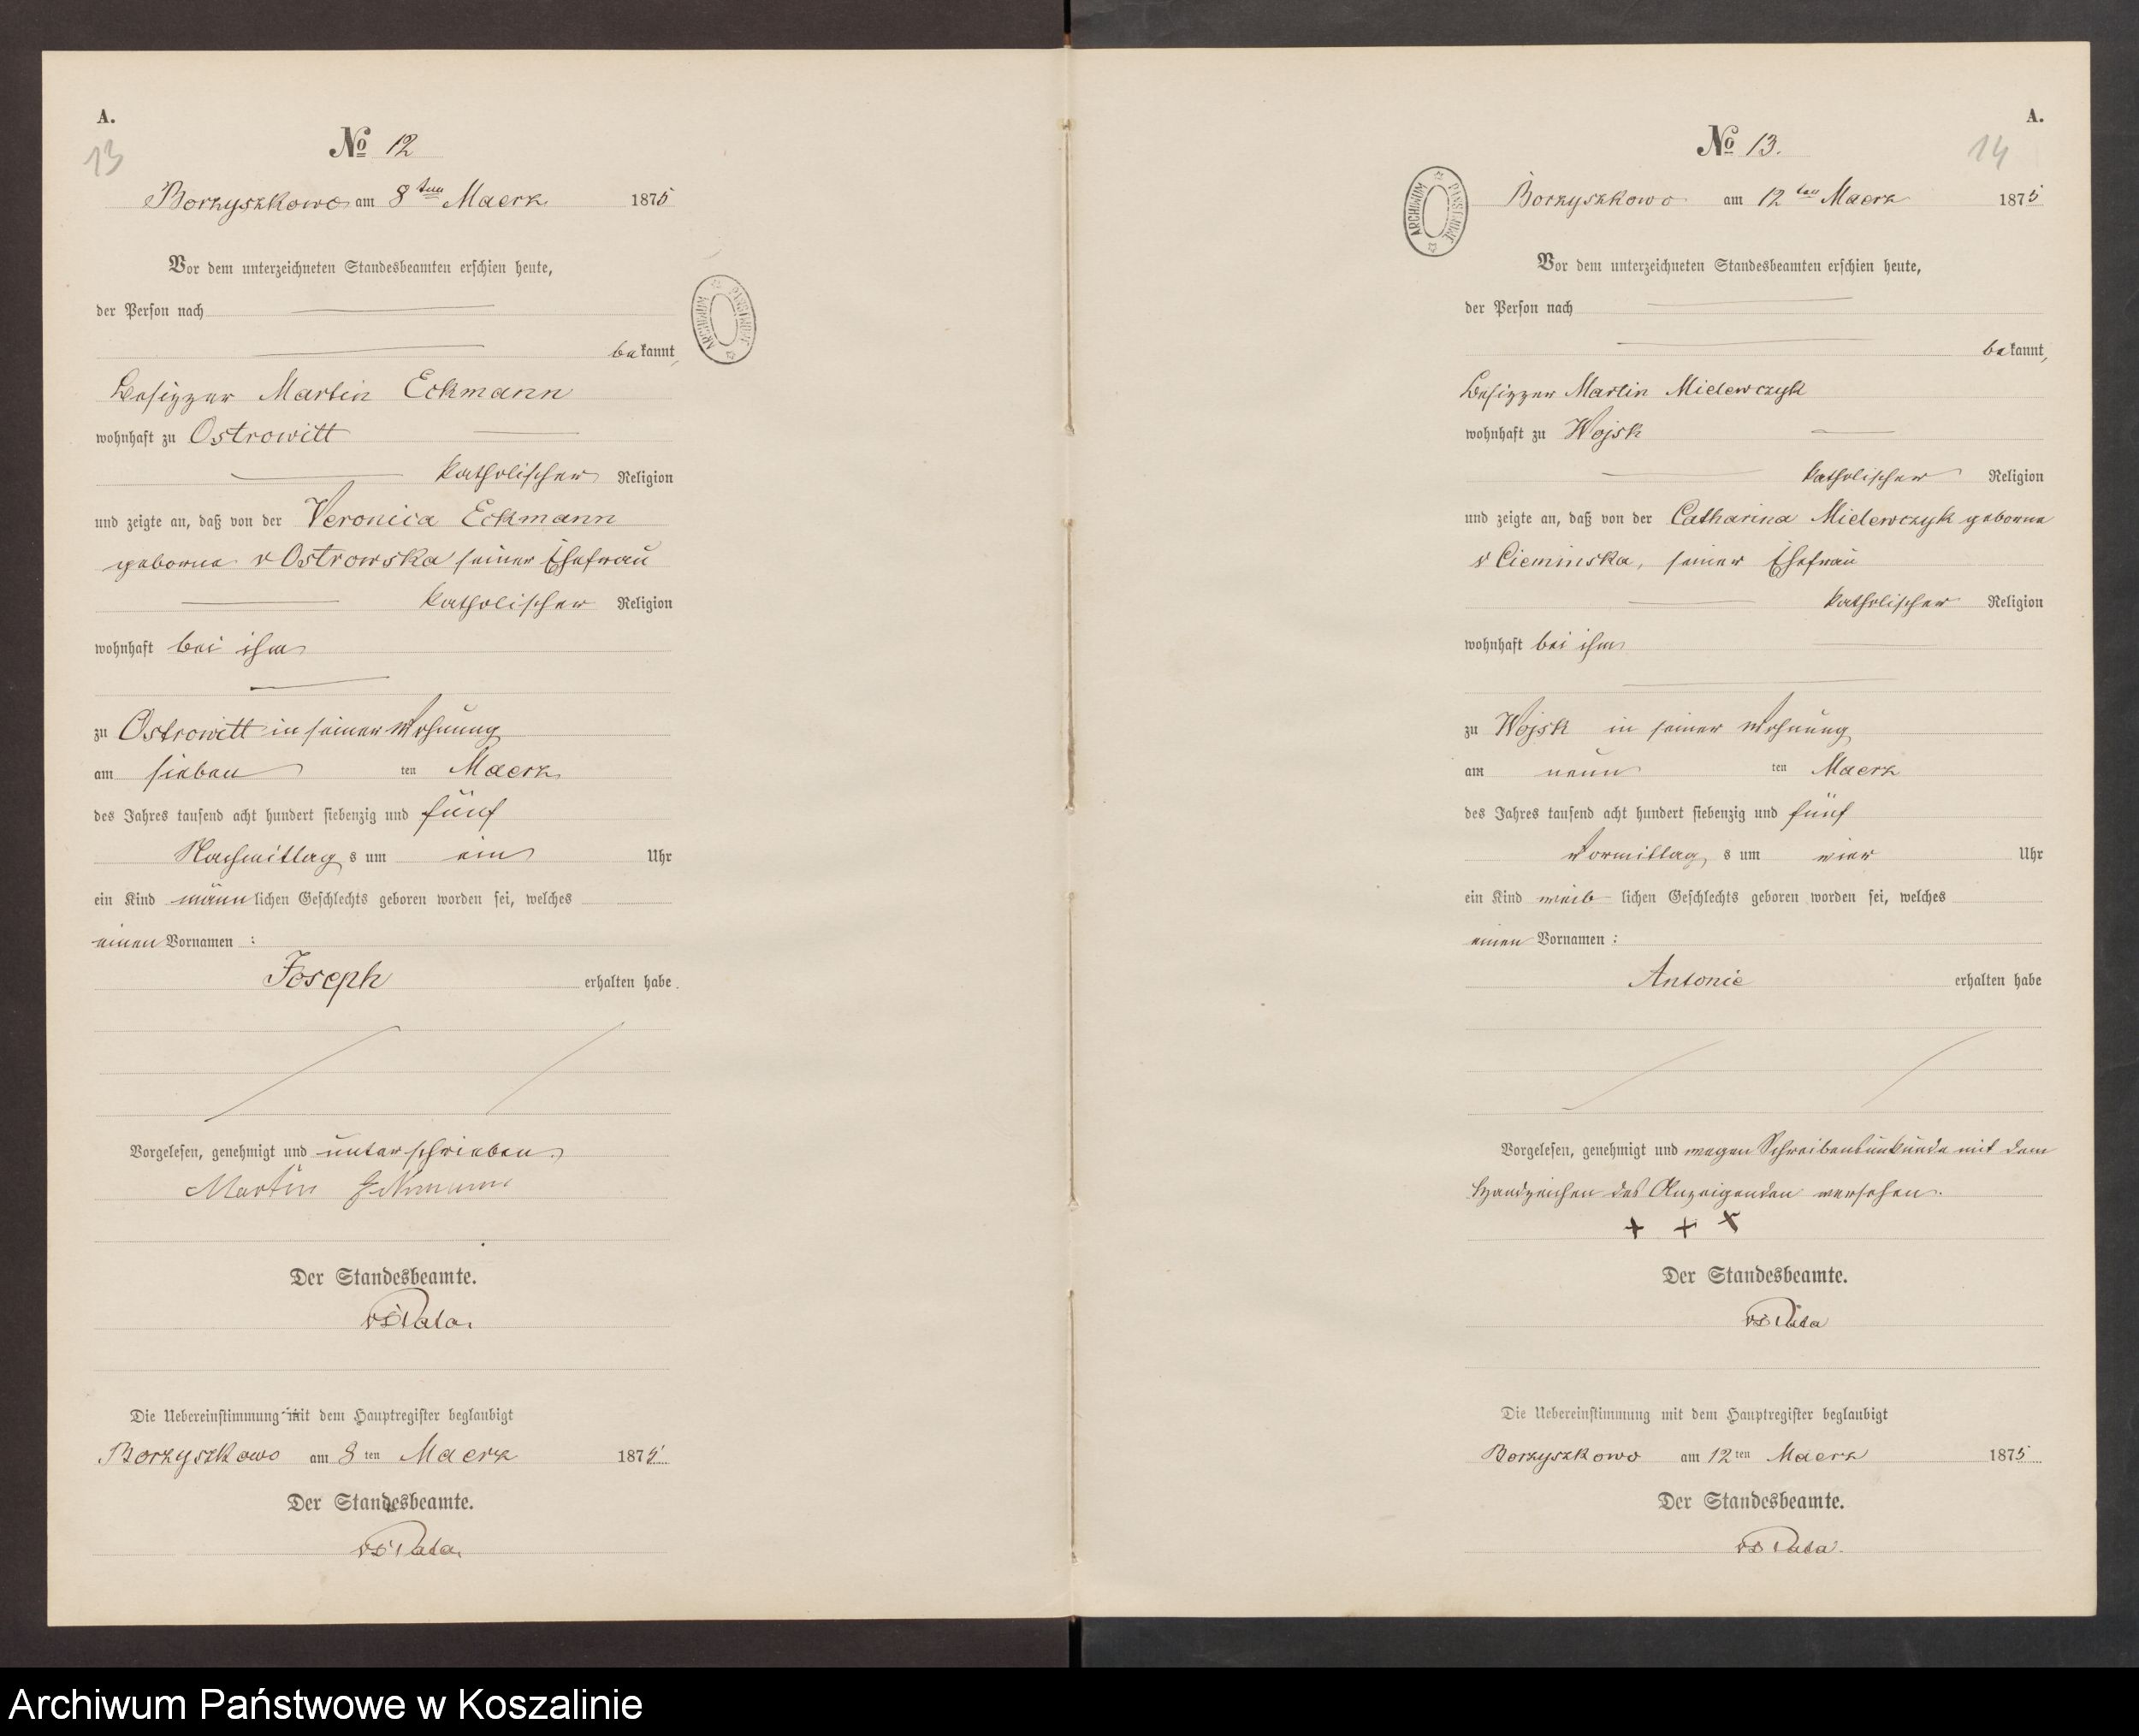 A.
13
No 12
Borzyszkowo am 8ten Maerz 1875
Vor dem unterzeichneten Standesbeamten erschien heute,
der Person nach
bekannt,
Besitzer Martin Eckmann
wohnhaft zu Ostrowitt
katholischer Religion
und zeigte an, daß von der Veronica Eckmann
geborne v Ostrowska seiner Ehefrau
katholischer Religion
wohnhaft bei ihm
zu Ostrowitt in seiner Wohnung
am sieben ten Maerz
des Jahres tausend acht hundert siebenzig und fünf
Nachmittag s um ein Uhr
ein Kind männlichen Geschlechts geboren worden sei, welches
einen Vornamen :
Joseph erhalten habe.
Vorgelesen, genehmigt und unterschrieben.
Martin Eckmann
Der Standesbeamte.
Die Uebereinstimmung mit dem Hauptregister beglaubigt
Borzyszkowo am 8 ten Maerz 1875
Der Standesbeamte.
ARCHIWUM PAŃSTWOWE
A.
14
No 13.
Borzyszkowo am 12ten Maerz 1875
Vor dem unterzeichneten Standesbeamten erschien heute,
der Person nach
bekannt,
Besitzer Martin Mielewczyk
wohnhaft zu Wojsk
katholischer Religion
und zeigte an, daß von der Catharina Mielewczyk geborne
v Cieminska, seiner Ehefrau
katholischer Religion
wohnhaft bei ihm
zu Wojsk in seiner Wohnung
am neun ten Maerz
des Jahres tausend acht hundert siebenzig und fünf
Vormittag s um vier Uhr
ein Kind weiblichen Geschlechts geboren worden sei, welches
einen Vornamen :
Antonie erhalten habe
Vorgelesen, genehmigt und wegen Schreibensunkunde mit dem
Handzeichen des Anzeigenden versehen.
+ + +
Der Standesbeamte.
Die Uebereinstimmung mit dem Hauptregister beglaubigt
Borzyszkowo am 12ten Maerz 1875
Der Standesbeamte.
ARCHIWUM PAŃSTWOWE
Archiwum Państwowe w Koszalinie